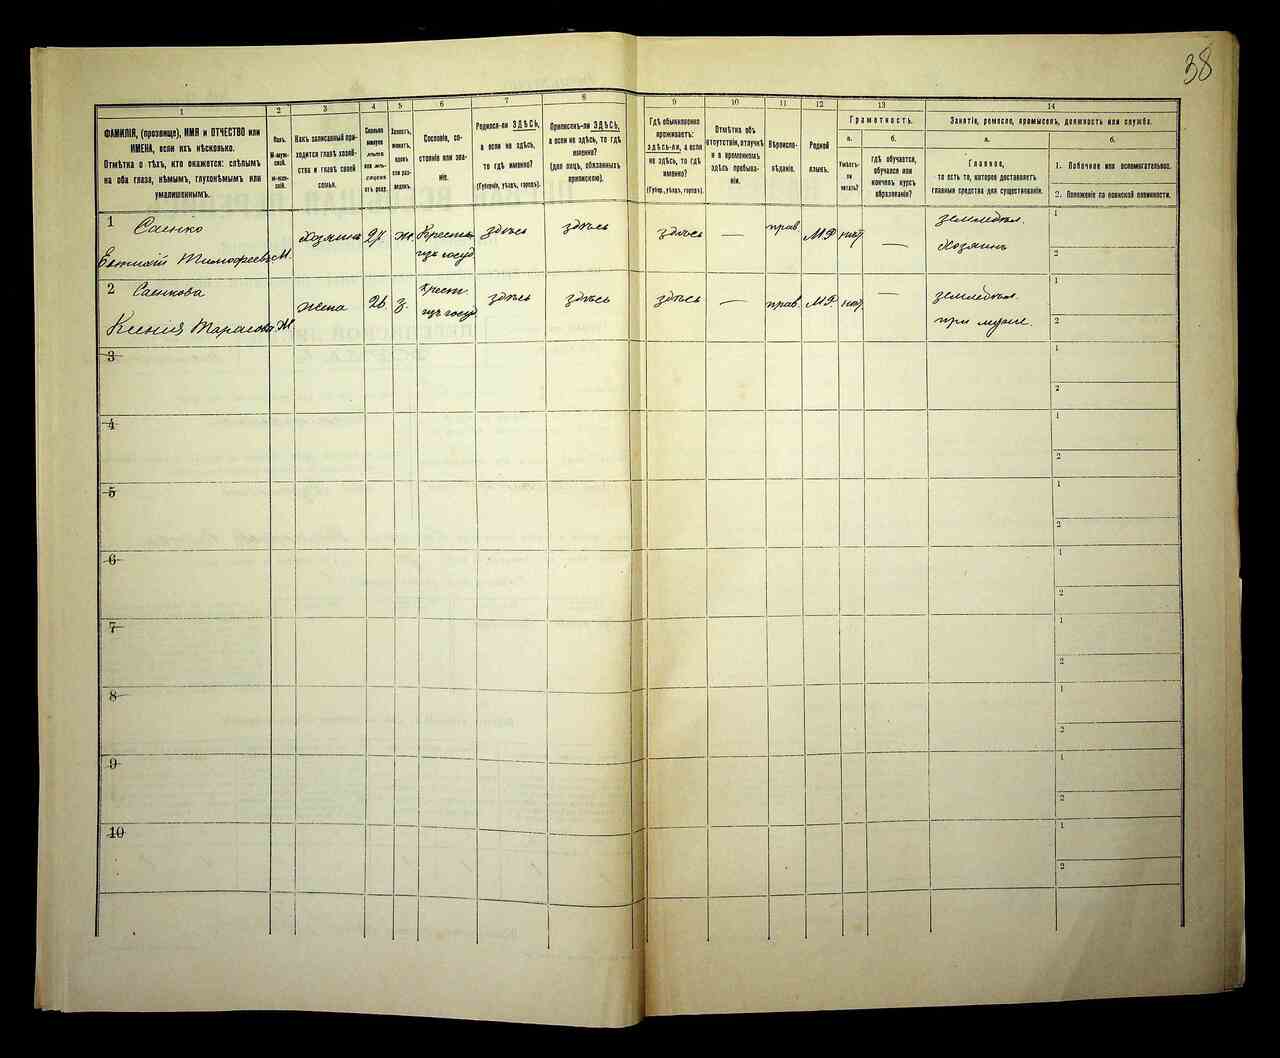 38
1
2
3
4
5
6
7
8
9
10
11
12
13
14
ФАМИЛІЯ, (прозвище), ИМЯ и ОТЧЕСТВО или
ИМЕНА, если ихъ нѣсколько.
Отмѣтка о тѣхъ, кто окажется: слѣпымъ
на оба глаза, нѣмымъ, глухонѣмымъ или
умалишеннымъ.
Полъ.
М-муж-
ской.
Ж-жен-
скій.
Какъ записанный при-
ходится главѣ хозяй-
ства и главѣ своей
семьи.
Сколько
минуло
лѣтъ
или мѣ-
сяцевъ
отъ роду.
Холостъ,
женатъ,
вдовъ
или раз-
веденъ.
Сословіе, со-
стояніе или зва-
ніе.
Родился-ли ЗДѢСЬ,
а если не здѣсь,
то гдѣ именно?
(Губернія, уѣздъ, городъ).
Приписанъ-ли ЗДѢСЬ,
а если не здѣсь, то гдѣ
именно?
(для лицъ, обязанныхъ
припискою).
Гдѣ обыкновенно
проживаетъ:
ЗДѢСЬ-ЛИ, а если
не здѣсь, то гдѣ
именно?
(Губ., уѣздъ, городъ).
Отмѣтка объ
отсутствіи, отлучкѣ
и о временномъ
здѣсь пребыва-
ніи.
Вѣроиспо-
вѣданіе.
Родной
языкъ.
Грамотность.
а.
Умѣетъ-
ли
читать?
б.
гдѣ обучается,
обучался или
кончилъ курсъ
образованія?
Занятіе, ремесло, промыселъ, должность или служба.
а.
Главное,
то есть то, которое доставляетъ
главныя средства для существованія.
б.
1. Побочное или вспомогательное.
2. Положеніе по воинской повинности.
1 Саенко
Тимофеевъ М. Хозяинъ 27 ж. здѣсь здѣсь здѣсь — прав. МР нѣт — земледѣл.
Хозяинъ
1
2
2 Саенкова
Ксенія Тарасова Ж. жена 26 з. Крест. здѣсь здѣсь здѣсь — прав. МР нѣт — земледѣл.
при мужѣ.
1
2
3
1
2
4
1
2
5
1
2
6
1
2
7
1
2
8
1
2
9
1
2
10
1
2